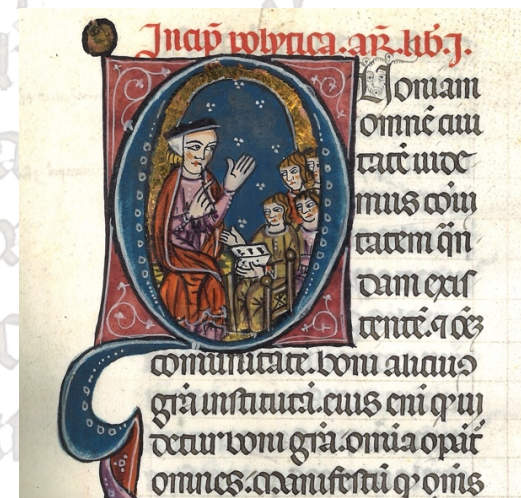 Incip̄ polytica.ar̄.lib.j.
QUoniam
omnē ciui
tatē uide
mus cōni
tatem q̄n
dam exis
tentē.⁊ oēz
cōmunitatē.boni alicuiꝰ
grā institutā.eius eni q̄ ui
detur boni grā.omia opāt̄
omnes.Manifestū q̄ omīs